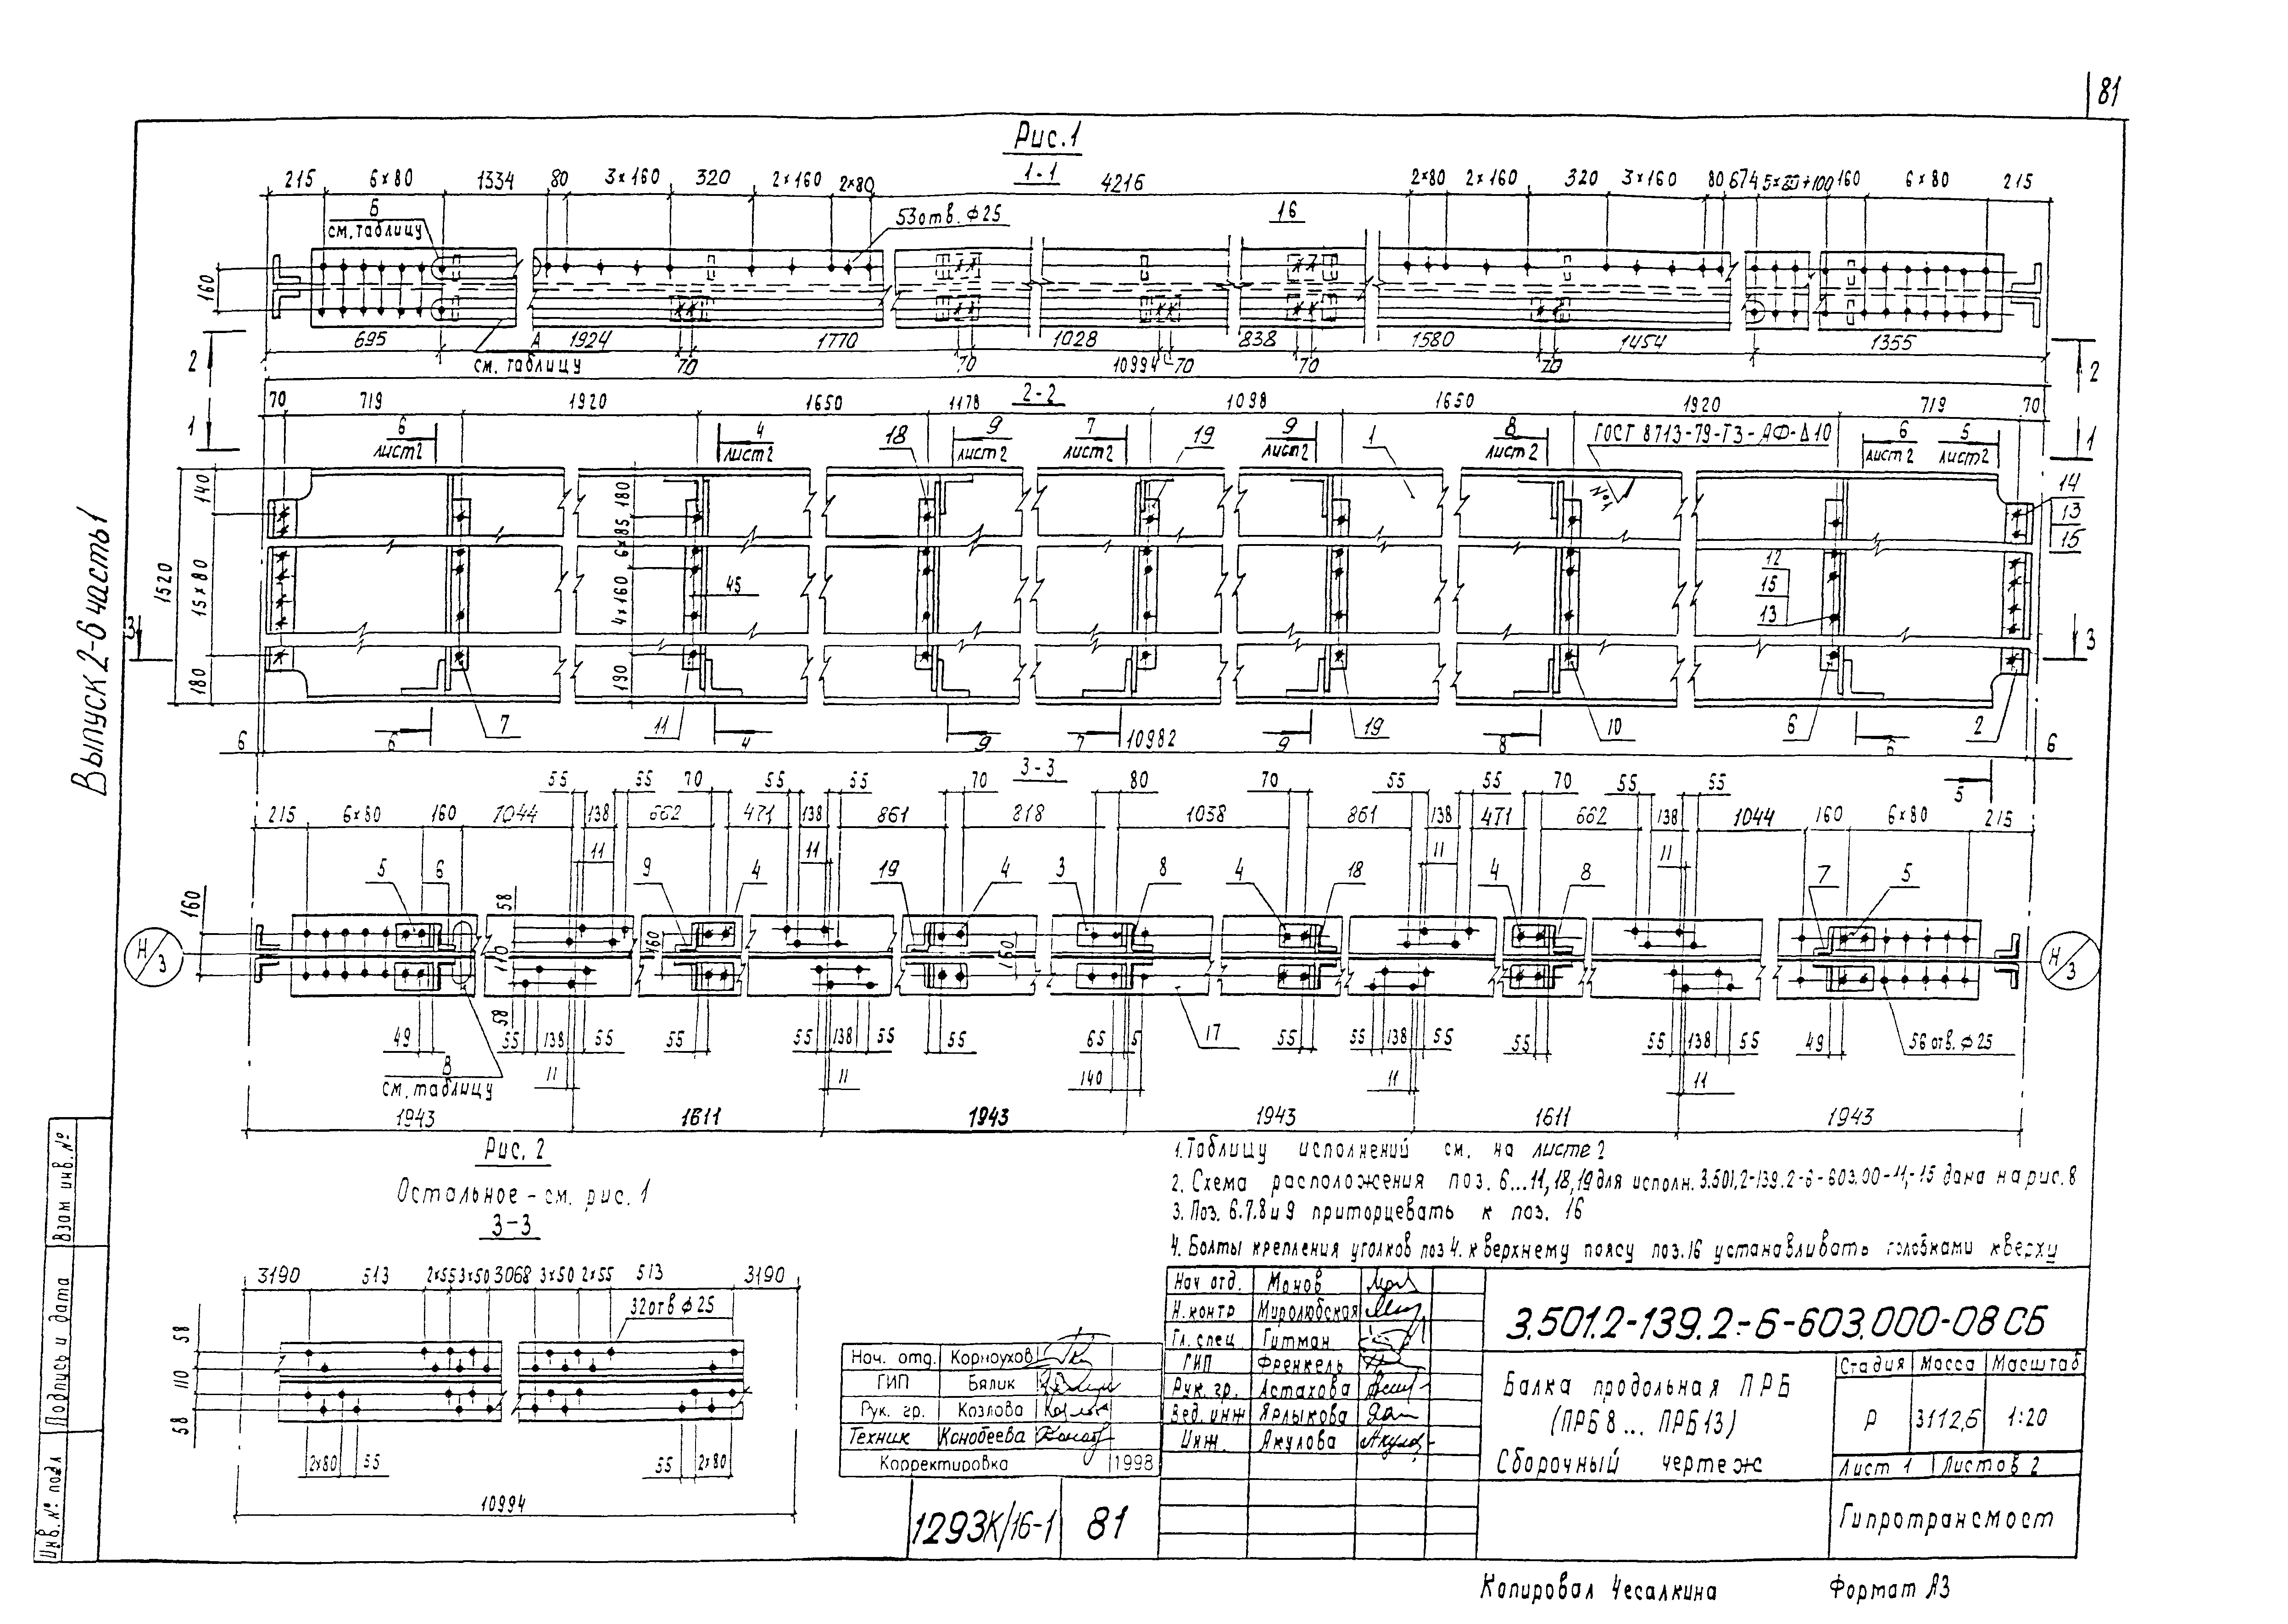 81
Рис.1
1-1
215 6×80 1334 80 3×160 320 2×160 2×80 4216 2×80 2×160 320 3×160 80 674 5×80+100 160 6×80 215
Б
см. таблицу
53отв. ф25
16
160
695 А 1924 1770 1028 838 1580 1454 1355
см. таблицу 70 70 10994 70 70 70
2 2
2-2
70 719 1920 1650 1178 1098 1650 1920 719 70
1 1
6 4 18 9 7 19 9 1 8 ГОСТ 8713-79-Т3-АФ-Δ10 6 5
лист2 лист2 лист2 лист2 лист2 лист2 лист2 лист2
№1
140 180 14
13
15
1520 15×80 6×85 45 4×160 12
15
13
3 3
180 190
7 11 19 10 6 2
6 6 4 9 7 10982 9 8 6 6
5
3-3
55 55 70 55 55 70 80 70 55 55 70 55 55
215 6×80 160 1044 138 662 471 138 861 218 1038 861 138 471 662 138 1044 160 6×80 215
11 11 11 11
5 6 9 4 19 4 3 8 4 18 4 8 7 5
160 58 110 160 160
Н/3 Н/3
58
49 55 138 55 55 55 138 55 55 65 5 17 55 55 138 55 55 55 138 55 49 56 отв. ф25
В
см. таблицу
11 11 140 11 11
1943 1611 1943 1943 1611 1943
Рис. 2
Остальное - см. рис. 1
3-3
3190 513 2×55 3×50 3068 3×50 2×55 513 3190
32отв ф25
58 110 58
2×80 55 55 2×80
10994
1. Таблицу исполнений см. на листе 2
2. Схема расположения поз. 6...11, 18, 19 для исполн. 3.501.2-139.2-6-603.00-11,-15 дана на рис. 8
3. Поз. 6.7.8 и 9 приторцевать к поз. 16
4. Болты крепления уголков поз 4. к верхнему поясу поз.16 устанавливать головками кверху
Нач. отд. Корноухов
ГИП Бялик
Рук. гр. Козлова
Техник Конобеева
Корректировка 1998
1293К/16-1 81
Нач отд. Монов
Н.контр Миролюбская
Гл. спец Гитман
ГИП Френкель
Рук. гр. Астахова
Вед. инж Ярлыкова
Инж. Якулова
3.501.2-139.2-6-603.000-08СБ
Балка продольная ПРБ
(ПРБ8... ПРБ13)
Сборочный чертеж
Стадия Масса Масштаб
Р 3112,6 1:20
Лист 1 Листов 2
Гипротрансмост
Копировал Чесалкина Формат А3
Выпуск 2-6 часть 1
Взам инв. №
Подпись и дата
Инв. № подл